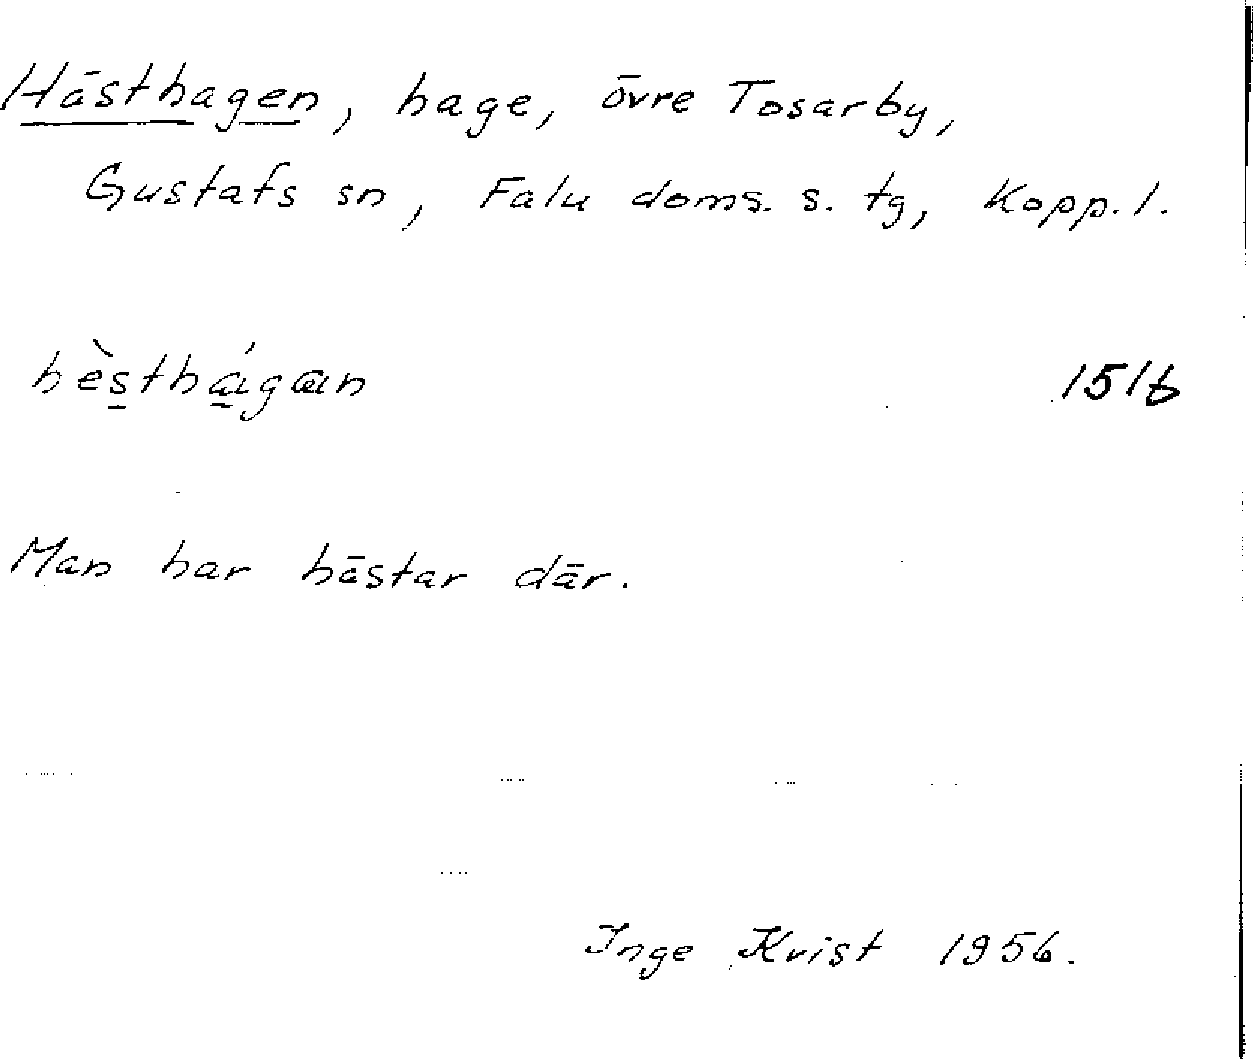 Hästhagen, hage, övre Tosarby,
Gustafs sn, Falu doms. s. tg, Kopp. l.
hèsthágan
Man har hästar där.
Inge Kvist 1956.